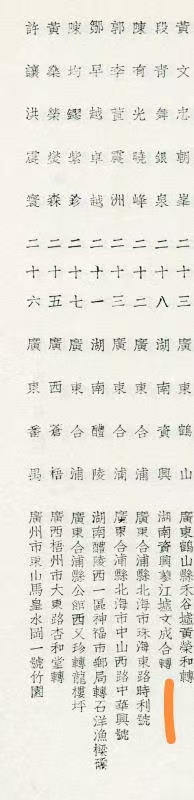 黃文忠 朝峯 二十三 廣東鶴山 廣東鶴山縣禾谷墟黃榮和轉
段青舞 銀泉 二十八 湖南資興 湖南資興蓼江墟文成合轉
陳有光 曉峰 二十三 廣東合浦 廣東合浦縣北海市珠海東路時利號
郭李萱 震洲 二十二 廣東合浦 廣東合浦縣北海市中山西路中華興號
鄒早越 卓越 二十一 湖南醴陵 湖南醴陵西一區神福市郵局轉石洋漁樑灣
陳均鏐 紫 二十七 廣東合浦 廣東合浦縣公館西又珍轉龍樓坪
黃燊榮 燮森 二十五 廣西蒼梧 廣西梧州市大東路杏和堂轉
許讓洪 震寰 二十六 廣東番禺 廣州市東山馬皇水岡一號竹園